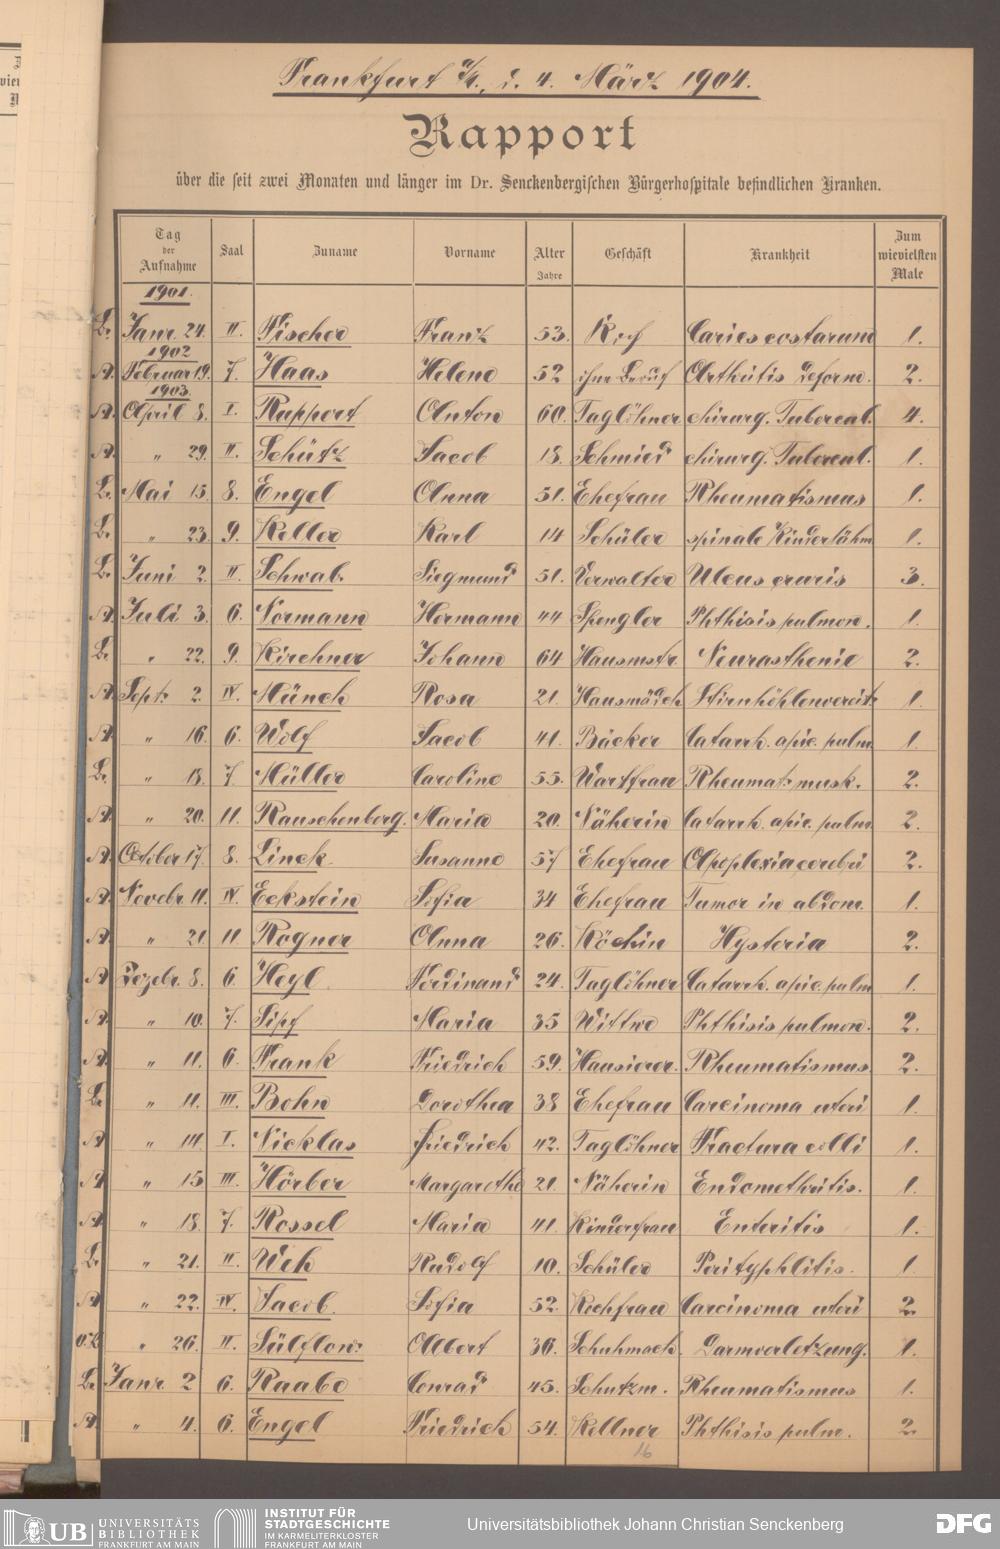 Frankfurt a/M., d. 4. März 1904.
Rapport
über die seit zwei Monaten und länger im Dr. Senckenbergischen Bürgerhospitale befindlichen Kranken.
Tag der Aufnahme Saal Zuname Vorname Alter Jahre Geschäft Krankheit Zum wievielsten Male
1901.
L. Janr. 24. II. Fischer Franz 53. Koch Caries costarum 1.
1902
A. Februar 19. 7. Haas Helene 52 ohne Beruf Arthritis deform. 2.
1903.
A. April 8. I. Ruppert Anton 60. Taglöhner chirurg. Tubercul. 4.
A. " 29. II. Schütz Jacob 18. Schmied chirurg. Tubercul. 1.
L. Mai 15. 8. Engel Anna 51. Ehefrau Rheumatismus 1.
L. " 23. 9. Keller Karl 14 Schüler spinale Kinderlähm 1.
L. Juni 2. II. Schwab. Siegmund 51. Verwalter Ulcus cruris 3.
A. Juli 3. 6. Normann Hermann 44 Spengler Phthisis pulmon. 1.
L. " 22. 9. Kirchner Johann 64 Hausmstr. Neurasthenie 2.
A. Sept. 2. IV. Münch Rosa 21. Hausmädch. Stirnhöhlenvereit. 1.
A. " 16. 6. Wolf Jacob 41. Bäcker Catarrh. apic. pulm. 1.
L. " 18. 7. Müller Caroline 55. Wartfrau Rheumat. musk. 2.
A. " 20. 11. Rauschenberg. Maria 20. Näherin Catarrh. apic. pulm. 2.
A. October 17. 8. Linck. Susanne 57 Ehefrau Apoplexia cerebri 2.
A. Novebr. 11. IV. Eckstein Sofia 34 Ehefrau Tumor in abdom. 1.
A. " 21. 11 Rogner Anna 26. Köchin Hysteria 2.
A. Dezebr. 8. 6. Heyl. Ferdinand 24. Taglöhner Catarrh. apic. pulm 1.
A. " 10. 7. Sipf Maria 35 Wittwe Phthisis pulmon. 2.
A. " 11. 6. Frank Friedrich 59. Hausierer. Rheumatismus. 2.
L. " 11. III. Bohn Dorothea 38 Ehefrau Carcinoma uteri 1.
A " 14. I. Nicklas Friedrich 42. Taglöhner Fractura colli 1.
A " 15 III. Hörber Margarethe 21. Näherin Endomethritis. 1.
A " 18. 7. Rossel Maria 41. Kinderfrau Enteritis 1.
L. " 21. II. Weh Rudolf 10. Schüler Perityphlitis. 1.
A " 22. IV. Jacob. Sofia 52. Kochfrau Carcinoma uteri 2.
" 26. II. Sülflow. Albert 36. Schuhmach. Darmverletzung. 1.
L. Janr. 2 6. Raabe Conrad 45. Schutzm. Rheumatismus 1.
A. " 4. 6. Engel Friedrich 54. Kellner Phthisis pulm. 2.
16
UB UNIVERSITÄTS BIBLIOTHEK FRANKFURT AM MAIN
INSTITUT FÜR STADTGESCHICHTE IM KARMELITERKLOSTER FRANKFURT AM MAIN
Universitätsbibliothek Johann Christian Senckenberg
DFG